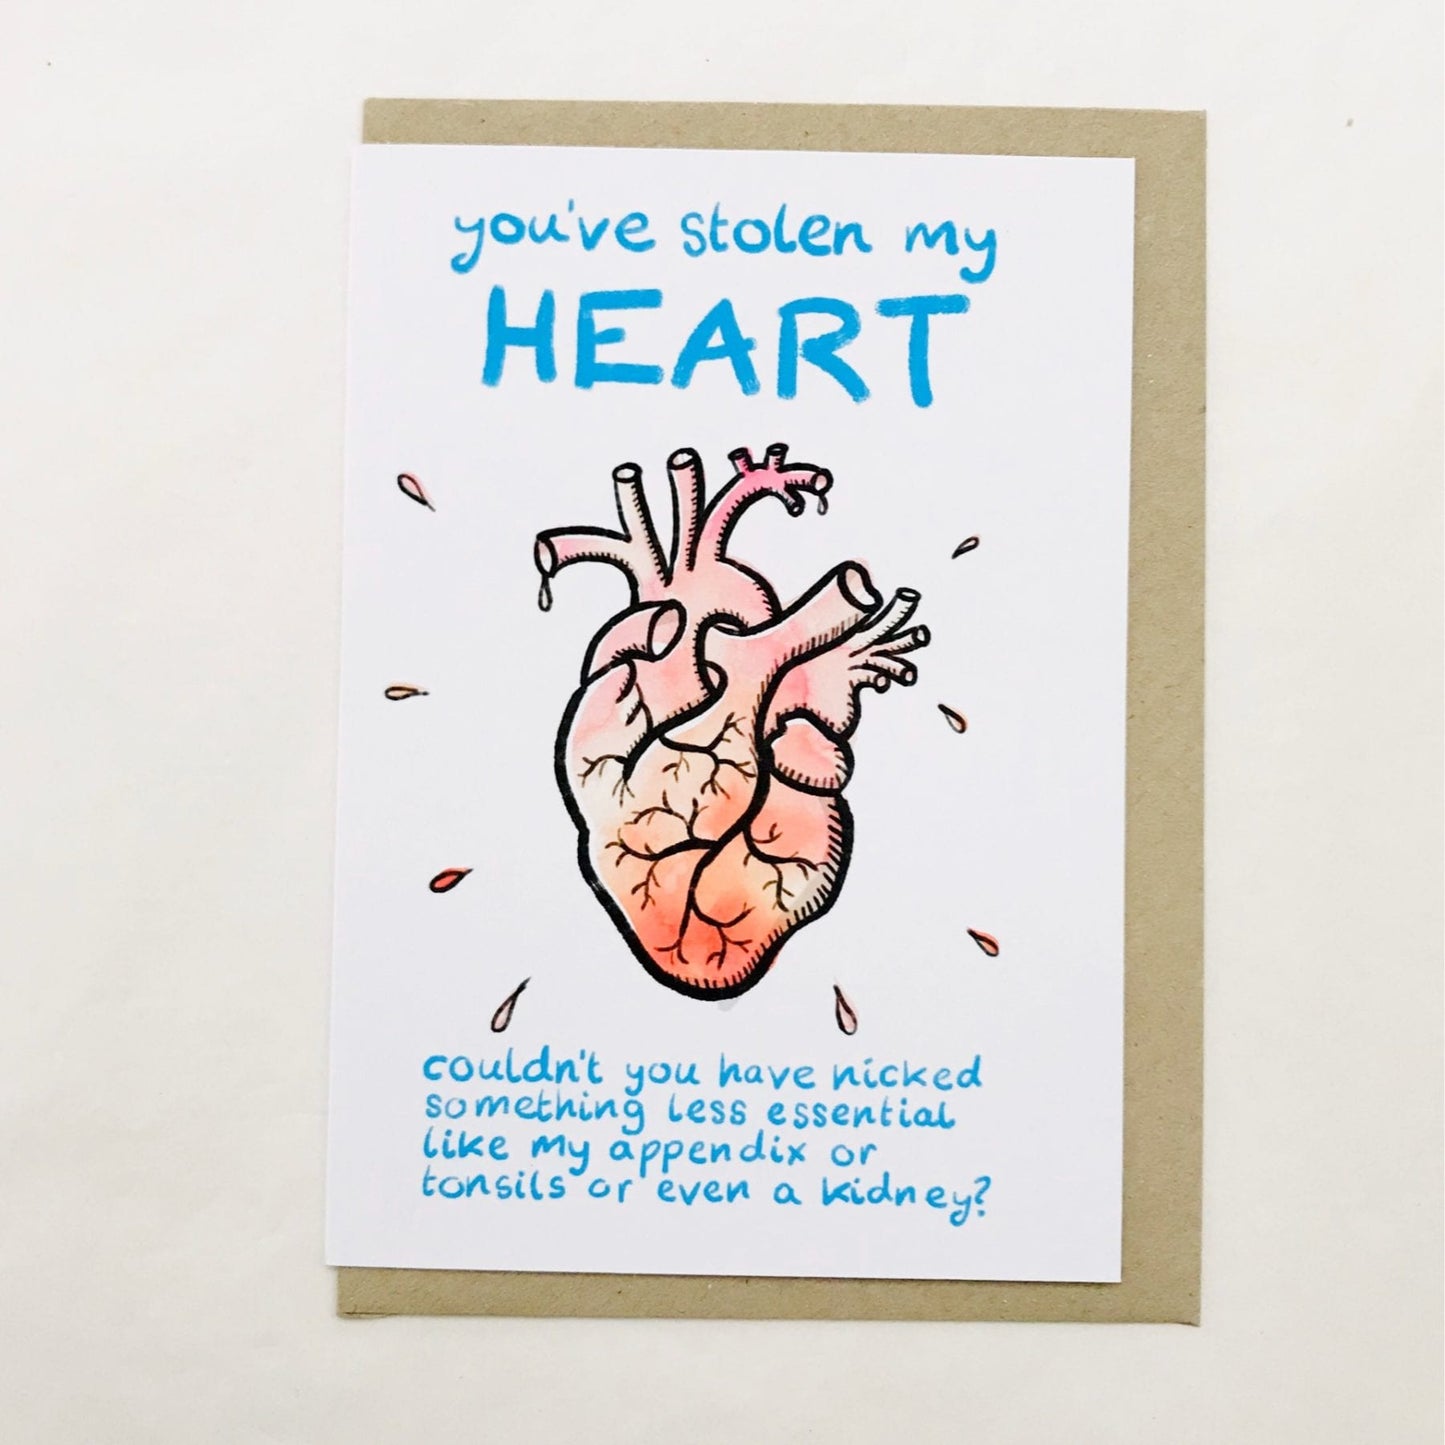 you've stolen my
HEART
couldn't you have nicked
something less essential
like my appendix or
tonsils or even a kidney?